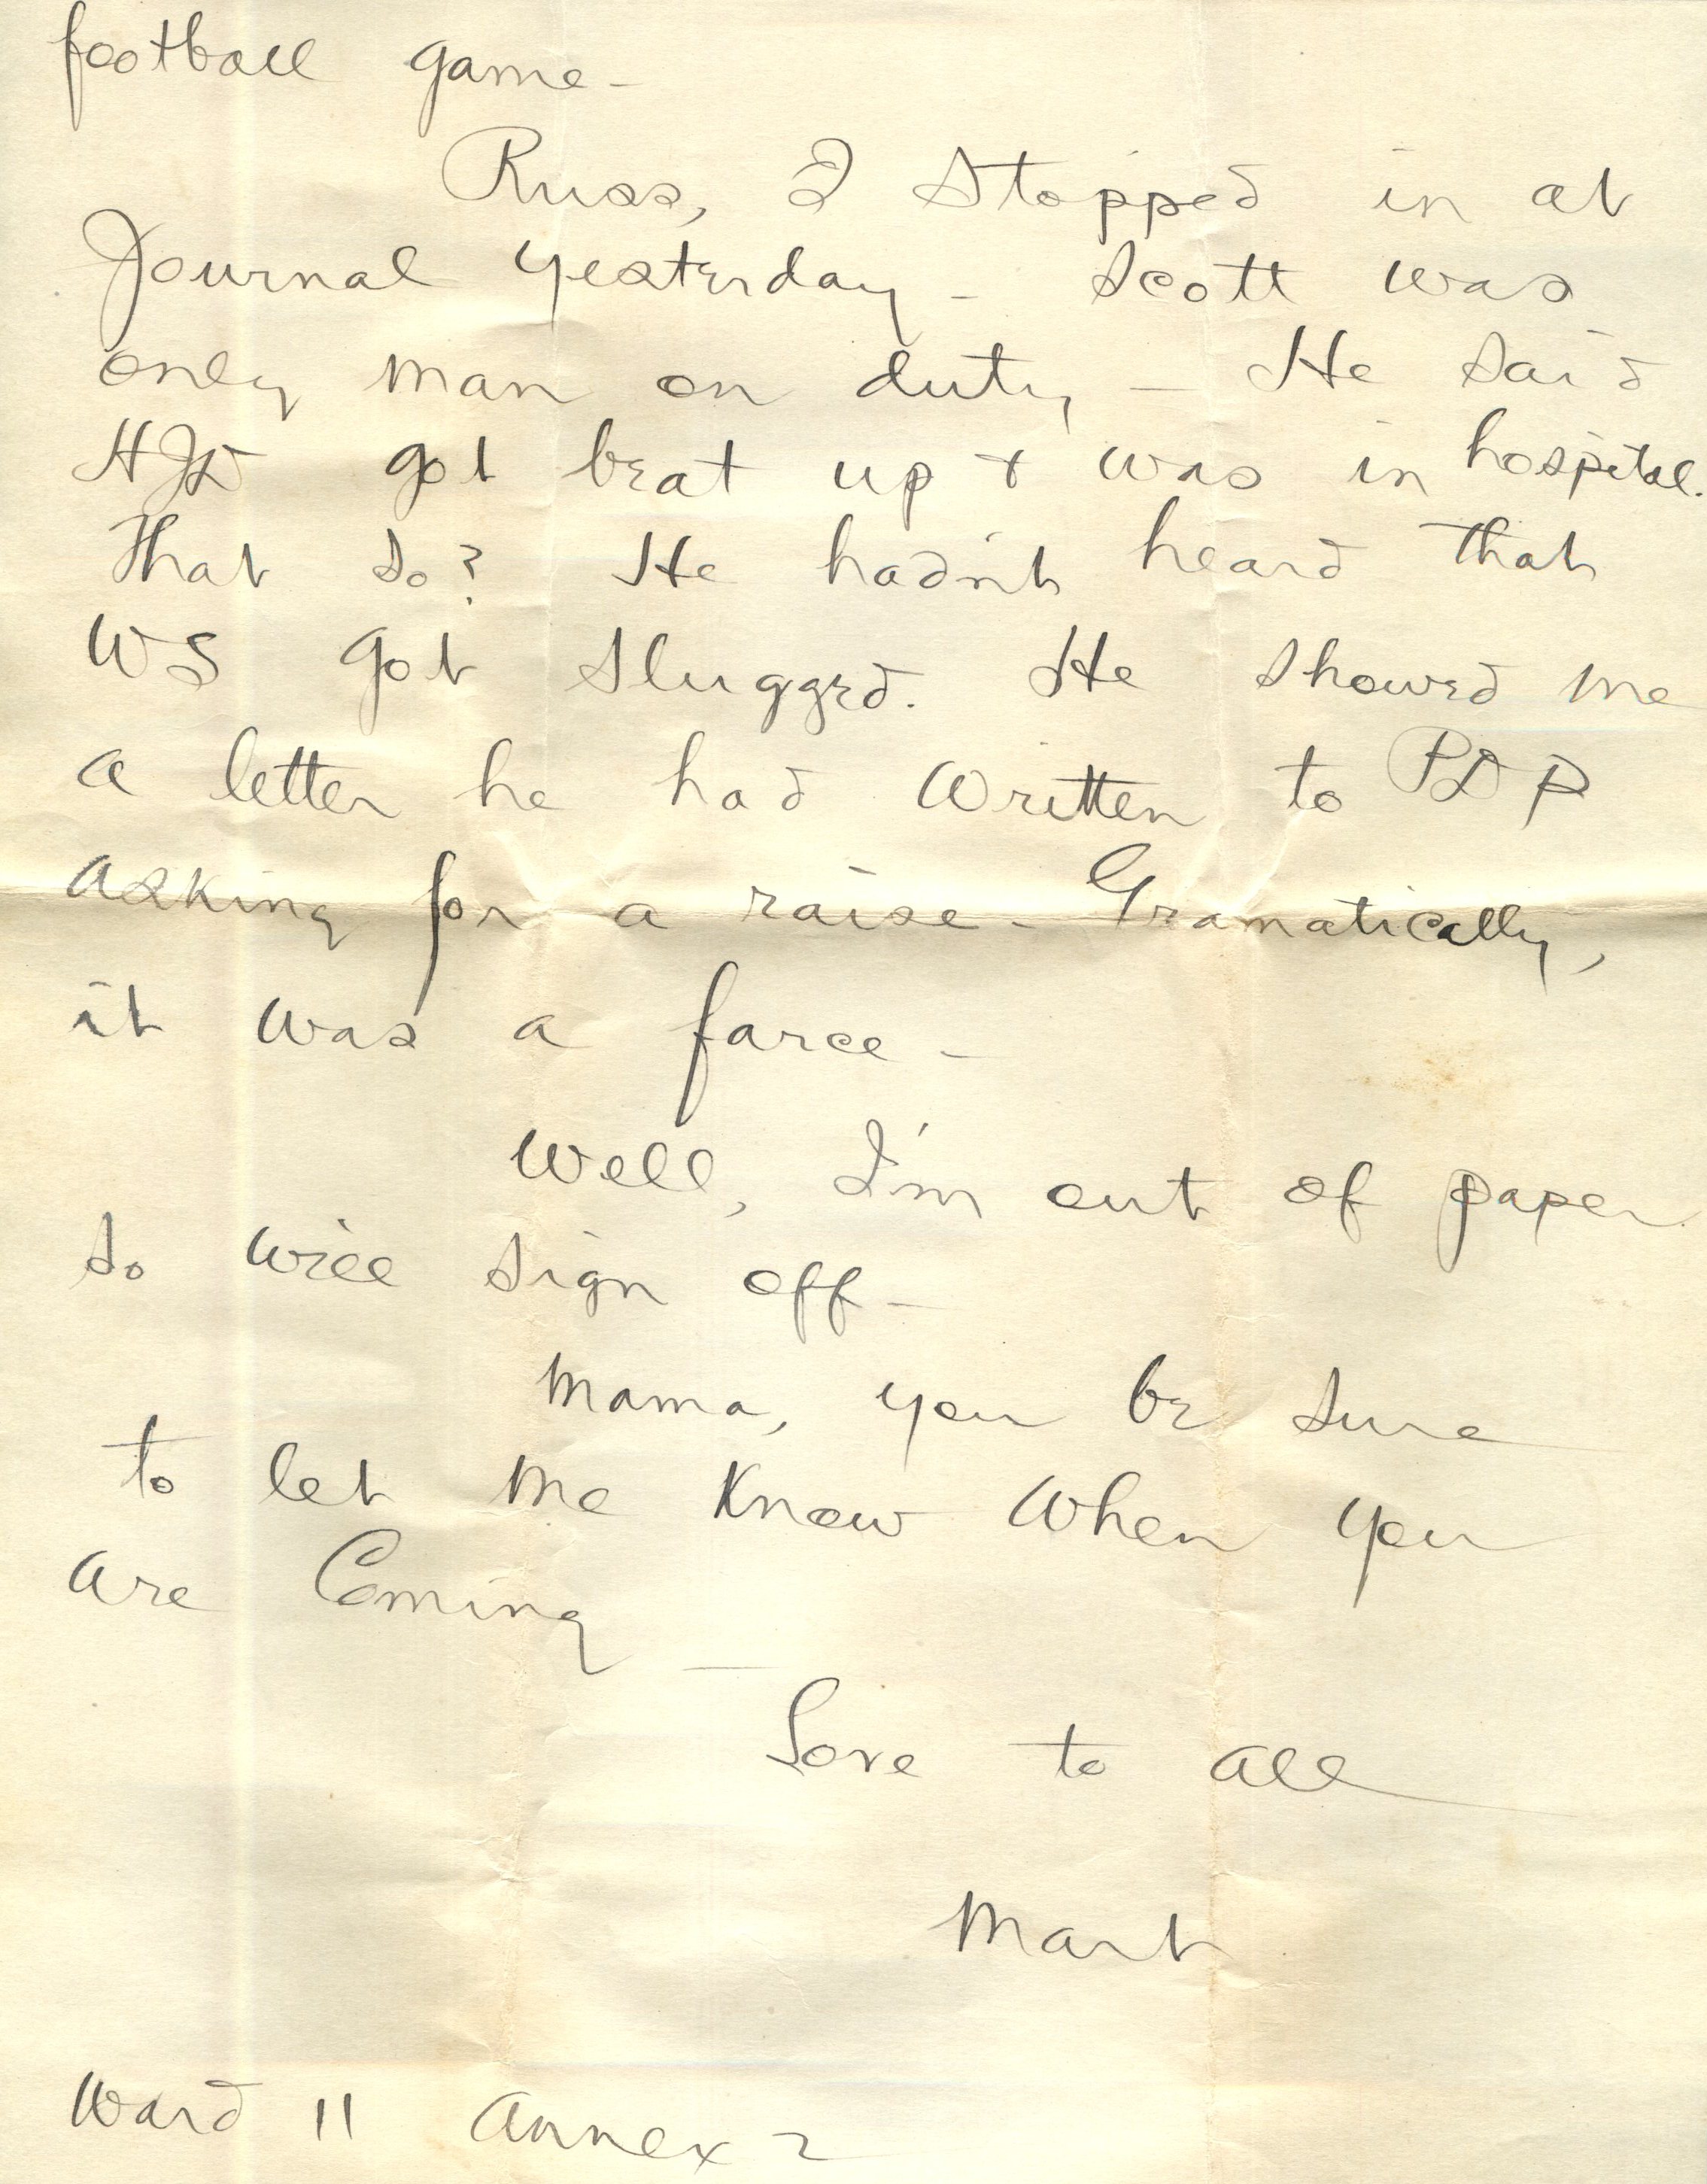 football game -
Russ, I stopped in at
Journal yesterday - Scott was
only man on duty - He said
HJD got beat up + was in hospital.
That so? He hadn't heard that
WS got slugged. He showed me
a letter he had written to PDP
asking for a raise - Gramatically,
it was a farce -
Well, I'm out of paper
so will sign off -
Mama, you be sure
to let me know when you
are coming -
Love to all
Mart
Ward 11 Annex 2